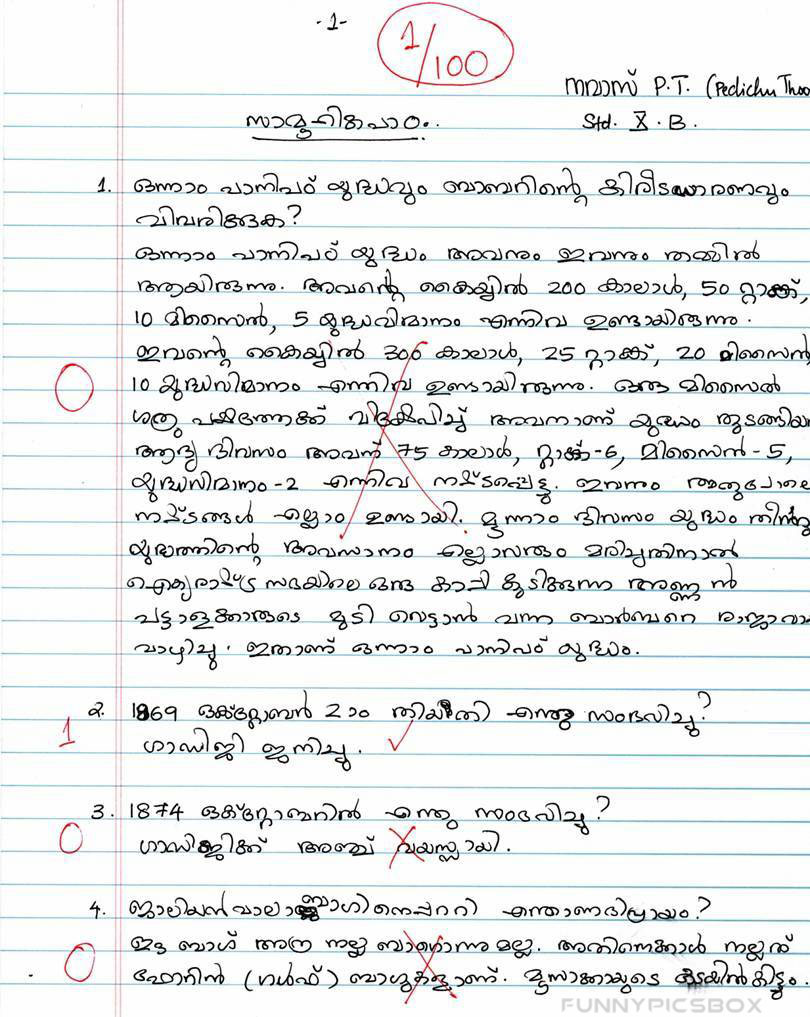 -1-
1/100
നവാസ് P.T. (Pedichu Thoo
സാമൂഹികപാഠം..
Std. X. B.
1. ഒന്നാം പാനിപഠ് യുദ്ധവും ബാബറിന്റെ കിരീടധാരണവും
വിവരിക്കുക?
ഒന്നാം പാനിപഠ് യുദ്ധം അവനും ഇവനും തമ്മിൽ
ആയിരുന്നു. അവന്റെ കൈയ്യിൽ 200 കാലാൾ, 50 റ്റാങ്ക്,
10 മിസൈൽ, 5 യുദ്ധവിമാനം എന്നിവ ഉണ്ടായിരുന്നു.
ഇവന്റെ കൈയ്യിൽ 300 കാലാൾ, 25 റ്റാങ്ക്, 20 മിസൈൽ
0
10 യുദ്ധവിമാനം എന്നിവ ഉണ്ടായിരുന്നു. ഒരു മിസൈൽ
ശത്രു പക്ഷത്തേക്ക് വിക്ഷേപിച്ച് അവനാണ് യുദ്ധം തുടങ്ങിയ
ആദ്യ ദിവസം അവന് 75 കാലാൾ, റ്റാങ്ക്-6, മിസൈൽ-5,
യുദ്ധവിമാനം-2 എന്നിവ നഷ്ടപ്പെട്ടു. ഇവനും അതുപോലെ
നഷ്ടങ്ങൾ എല്ലാം ഉണ്ടായി. മൂന്നാം ദിവസം യുദ്ധം തീർന്നു
യുദ്ധത്തിന്റെ അവസാനം എല്ലാവരും മരിച്ചതിനാൽ
ഐക്യരാഷ്ട്ര സഭയിലെ ഒരു കാപ്പി കുടിക്കുന്ന അണ്ണൻ
പട്ടാളക്കാരുടെ മുടി വെട്ടാൻ വന്ന ബാർബറെ രാജാവാ
വാഴിച്ചു. ഇതാണ് ഒന്നാം പാനിപഠ് യുദ്ധം.
2. 1869 ഒക്റ്റോബർ 2ാം തിയതി എന്തു സംഭവിച്ചു?
1
ഗാന്ധിജി ജനിച്ചു.
3. 1874 ഒക്റ്റോബറിൽ എന്തു സംഭവിച്ചു?
0
ഗാന്ധിജിക്ക് അഞ്ച് വയസ്സായി.
4. ജാലിയൻവാലാബാഗിനെപ്പററി എന്താണഭിപ്രായം?
0
ഇല്ല ബാഗ് അത്ര നല്ല ബാഗൊന്നുമല്ല. അതിനെക്കാൾ നല്ലത്
ഫോറിൻ (ഗൾഫ്) ബാഗുകളാണ്. മൂസാക്കായുടെ കടയിൽകിട്ടും.
FUNNYPICSBOX